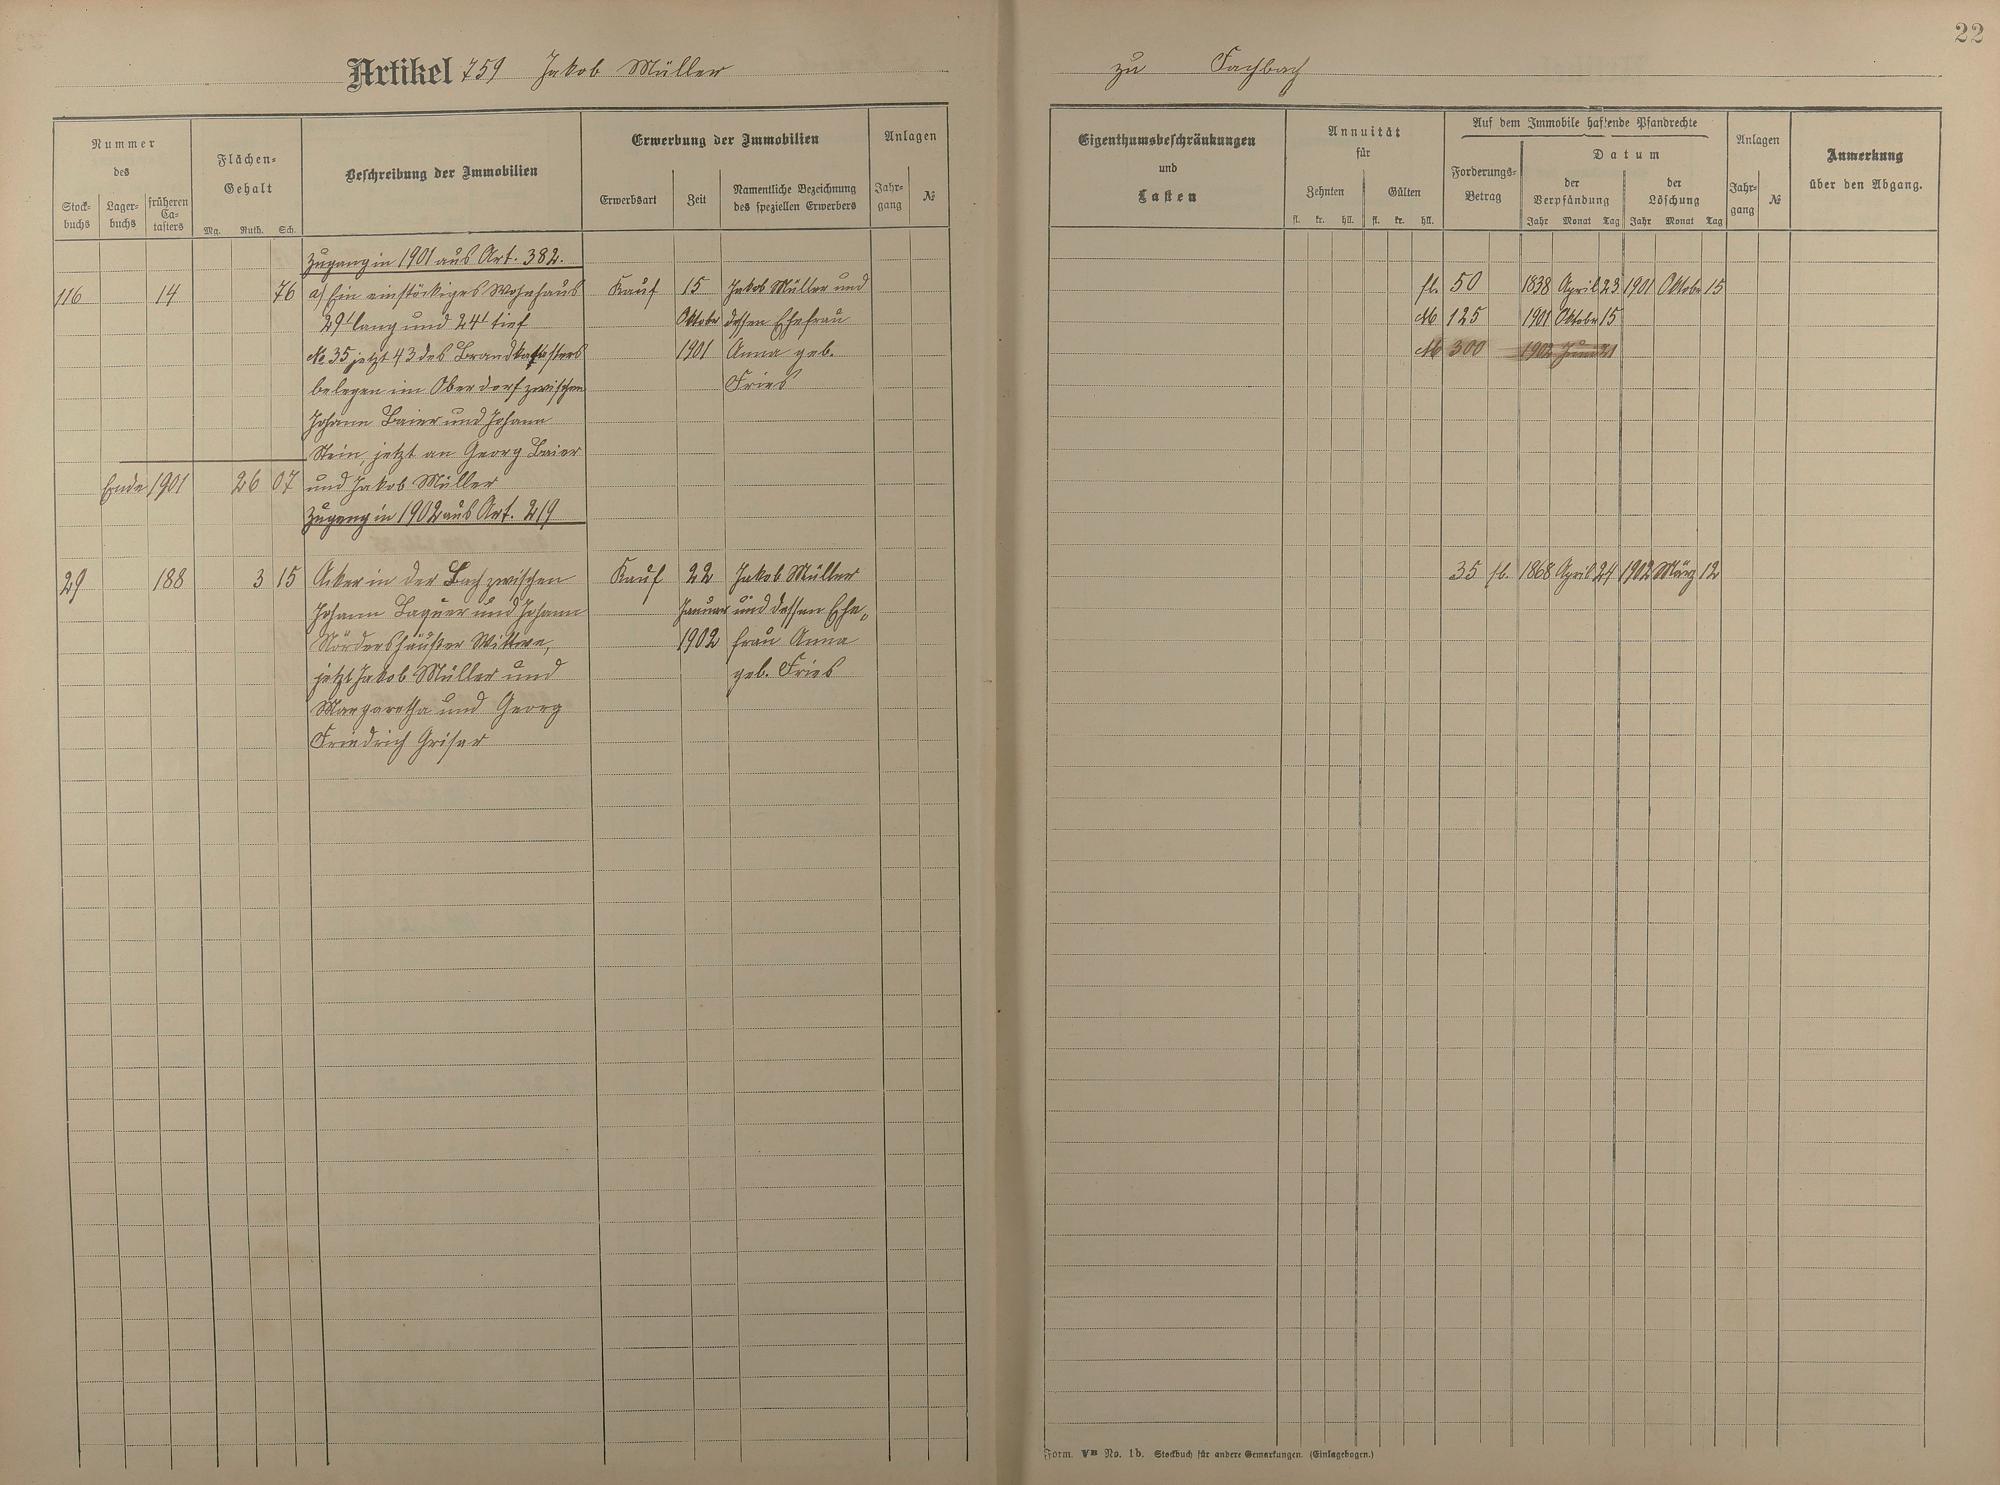 22
Artikel 759 Jakob Müller
zu Fachbach
Nummer
des
Stock-
buchs
Lager-
buchs
früheren
Ca-
tasters
Flächen-
Gehalt
Mg. Ruth. Sch.
Beschreibung der Immobilien
Erwerbung der Immobilien
Erwerbsart
Zeit
Namentliche Bezeichnung
des speziellen Erwerbers
Anlagen
Jahr-
gang
№
Eigenthumsbeschränkungen
und
Lasten
Annuität
für
Zehnten
Gülten
fl. kr. hll. fl. kr. hll.
Auf dem Immobile haftende Pfandrechte
Forderungs-
Betrag
Datum
der
Verpfändung
Jahr Monat Tag
der
Löschung
Jahr Monat Tag
Anlagen
Jahr-
gang
№
Anmerkung
über den Abgang.
Zugang in 1901 aus Art. 382.
116 14 76 a) Ein einstöckiges Wohnhaus Kauf 15 Jakob Müller und fl. 50 1838 April 23 1901 Oktobr 15
29' lang und 24' tief Oktober dessen Ehefrau M 125 1901 Oktobr 15
№ 35 jetzt 43 des Brandkatasters 1901 Anna geb. M 300 1902 Juni 21
belegen im Oberdorf zwischen Fries
Johann Baier und Johann
Stein, jetzt an Georg Baier
Ende 1901 26 07 und Jakob Müller
Zugang in 1902 aus Art. 219
29 188 3 15 Acker in der Bach zwischen Kauf 22 Jakob Müller 35 fl. 1868 April 24 1902 März 12
Johann Baquer und Johann Januar und dessen Ehe„
Nördershäußer Wittwe, 1902 frau Anna
jetzt Jakob Müller und geb. Fries
Margaretha und Georg
Friedrich Griser
Form. VB No. 1b. Stockbuch für andere Gemarkungen. (Einlagebogen.)